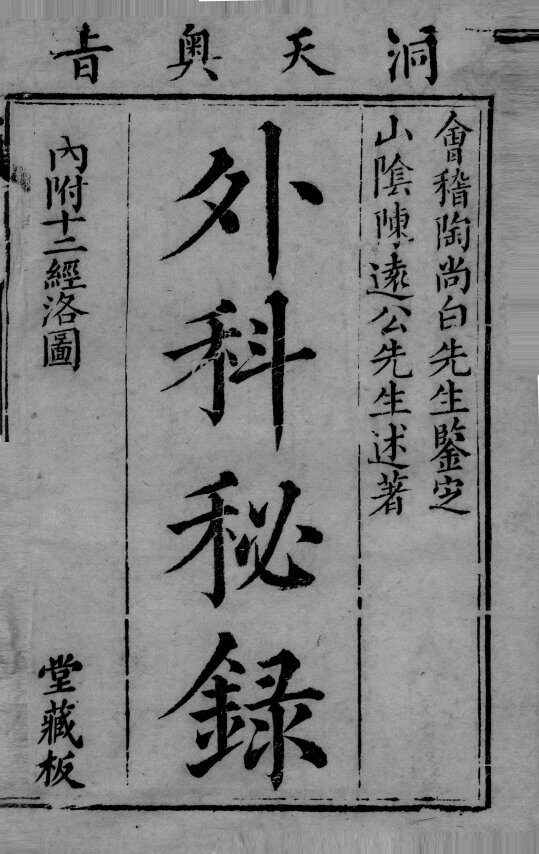 洞天奧旨
會稽陶尚白先生鑒定
山陰陳遠公先生述著
外科秘録
內附十二經洛圖
堂藏板